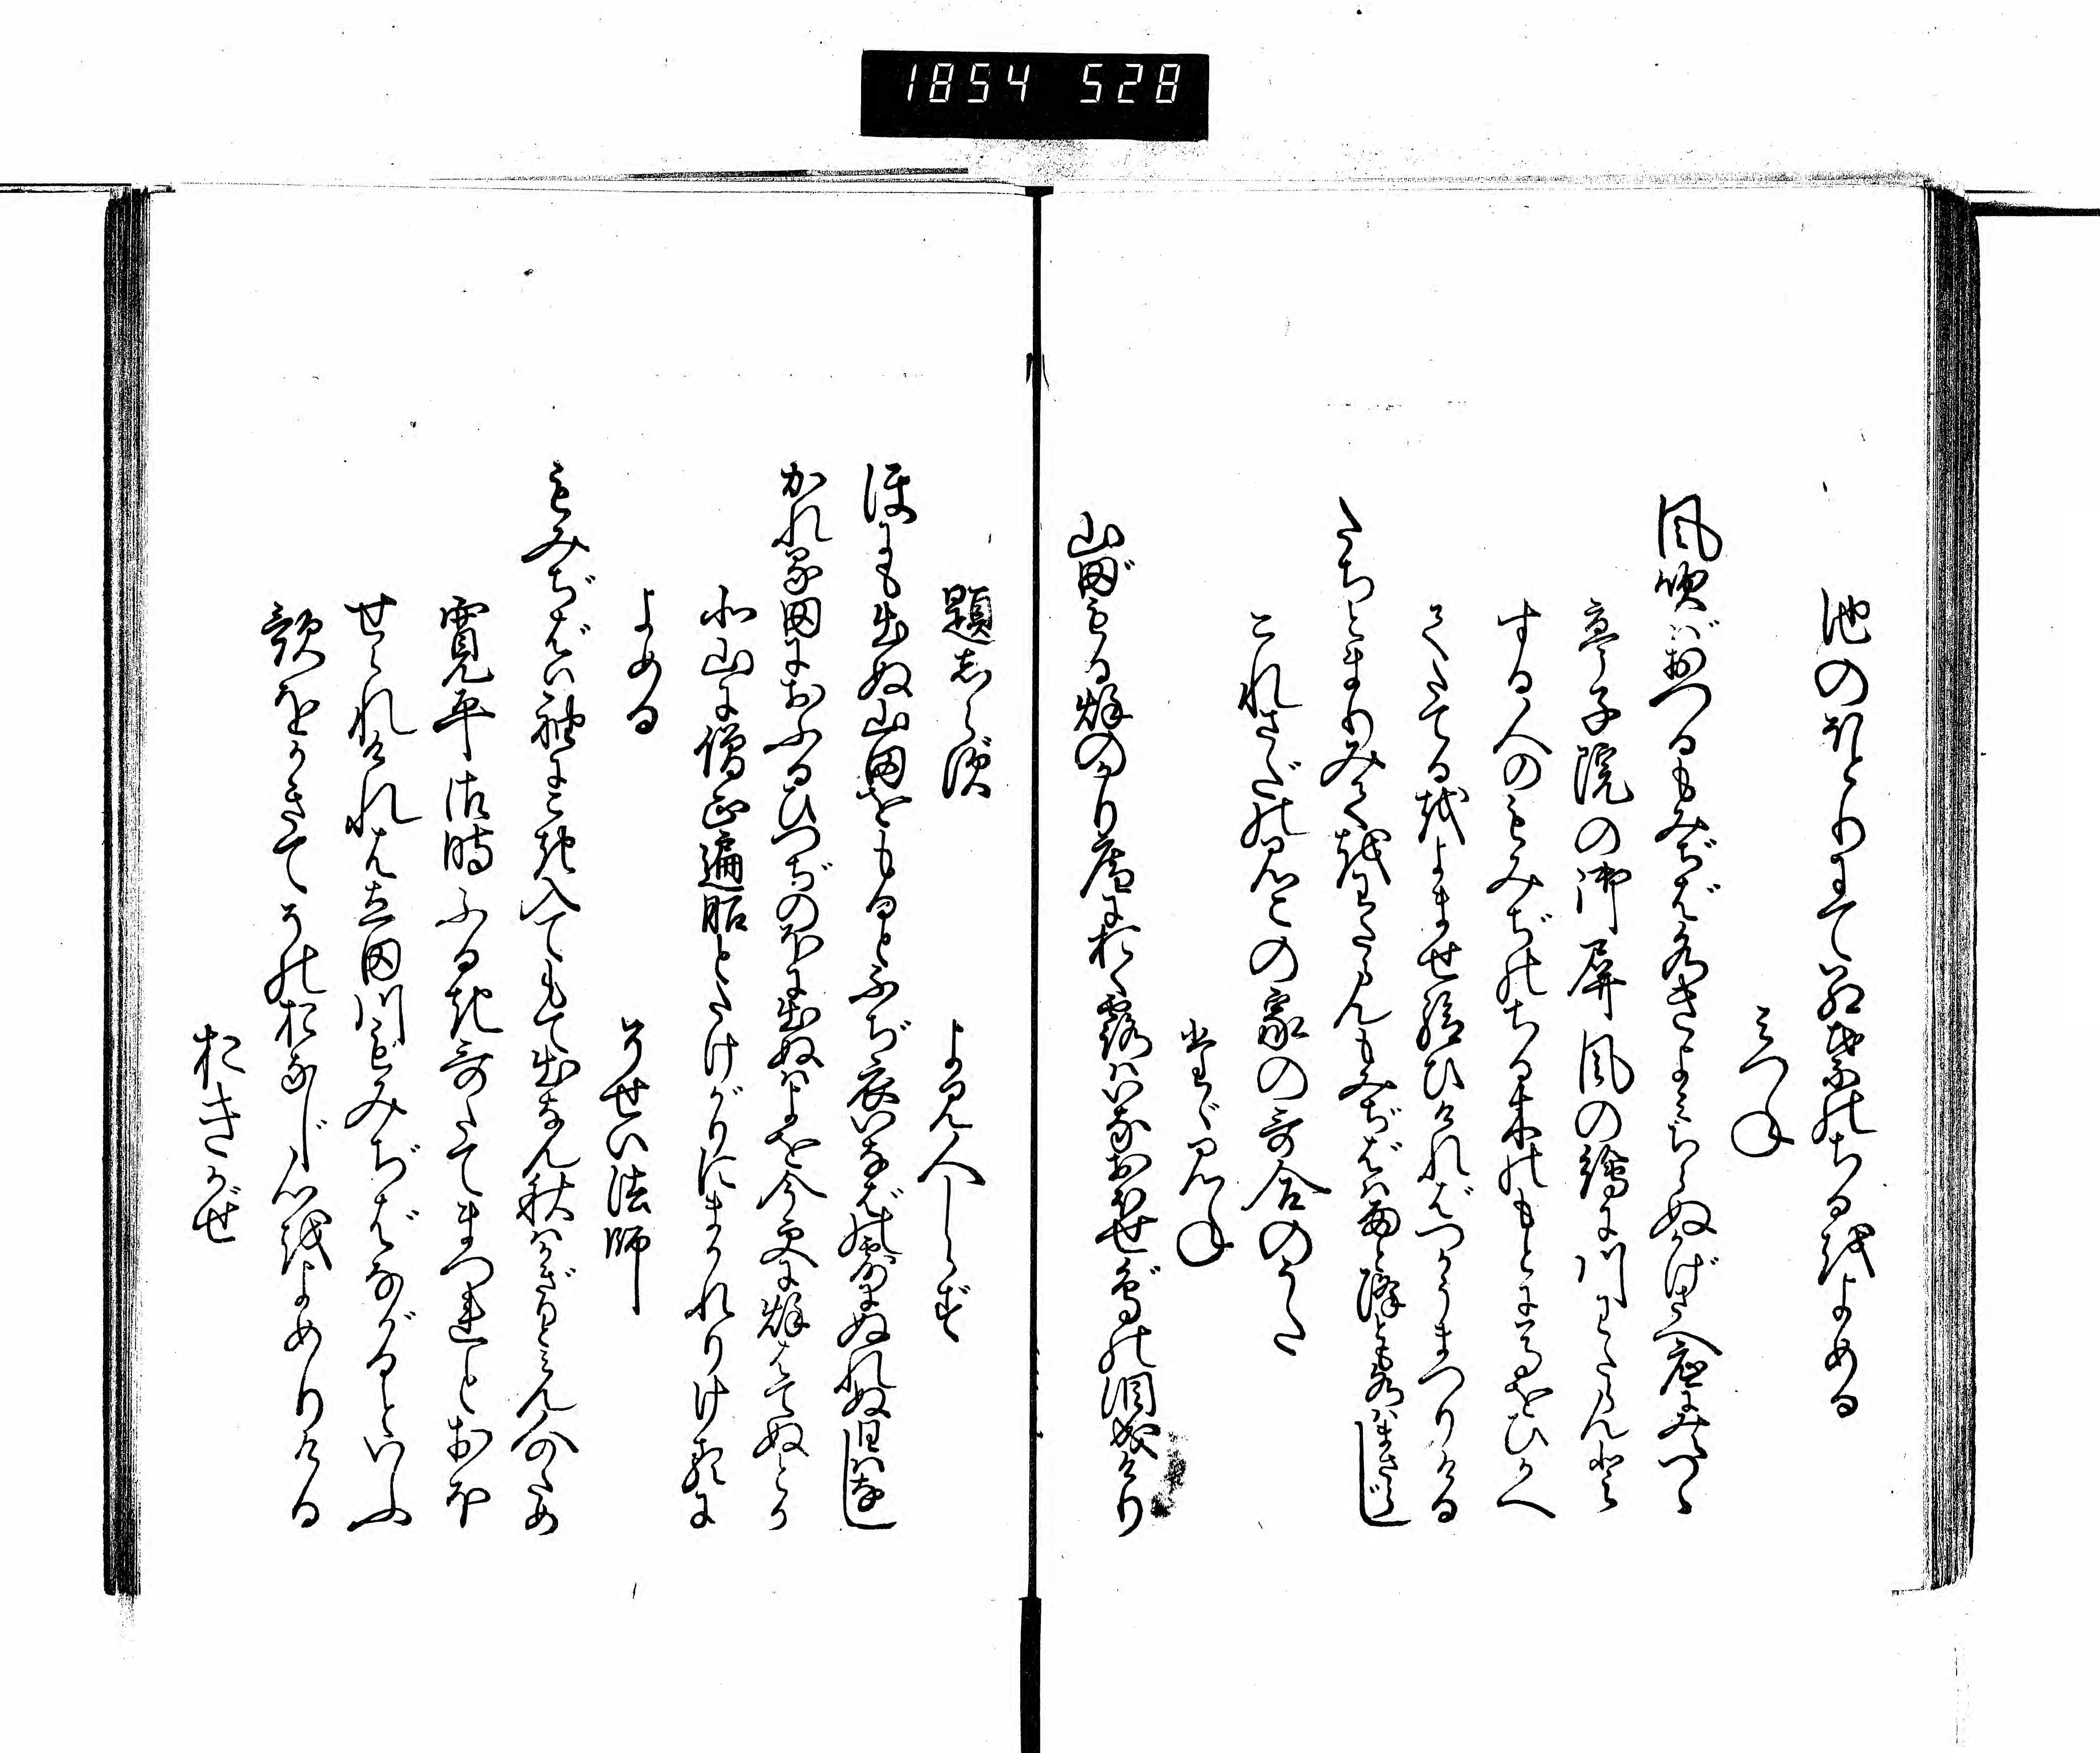 1854 528
池のほとりにて紅葉のちるをよめる
みつね
風吹ばおつるもみぢば水きよみちらぬかげさへ底にみえつゝ
亭子院の御屏風の繪に川わたらんと
する人のもみぢのちる木のもとに馬をひかへ
てたてるをよませ給ひければつかうまつりける
たちとまりみてをわたらんもみぢばは雨と降とも水はまさらじ
これさだのみこの家の哥合のうた
たゞみね
山田もる秌のかり庵におく露はいなおほせ鳥の涙成けり
題しらず
よみ人しらず
ほにも出ぬ山田をもるとふぢ衣いなば乃露にぬれぬ日はなし
かれる田におふるひつぢのほに出ぬはよを今更に秌はてぬとか
北山に僧正遍昭とたけがりにまかれりけるに
よめる
そせい法師
もみぢばは袖にこき入てもて出なん秋はかぎりとみん人のため
寛平御時ふるき哥たてまつれとおほ
せられければ立田川もみぢばながるといふ
歌をかきてそのおなじ心をよめりける
おきかぜ